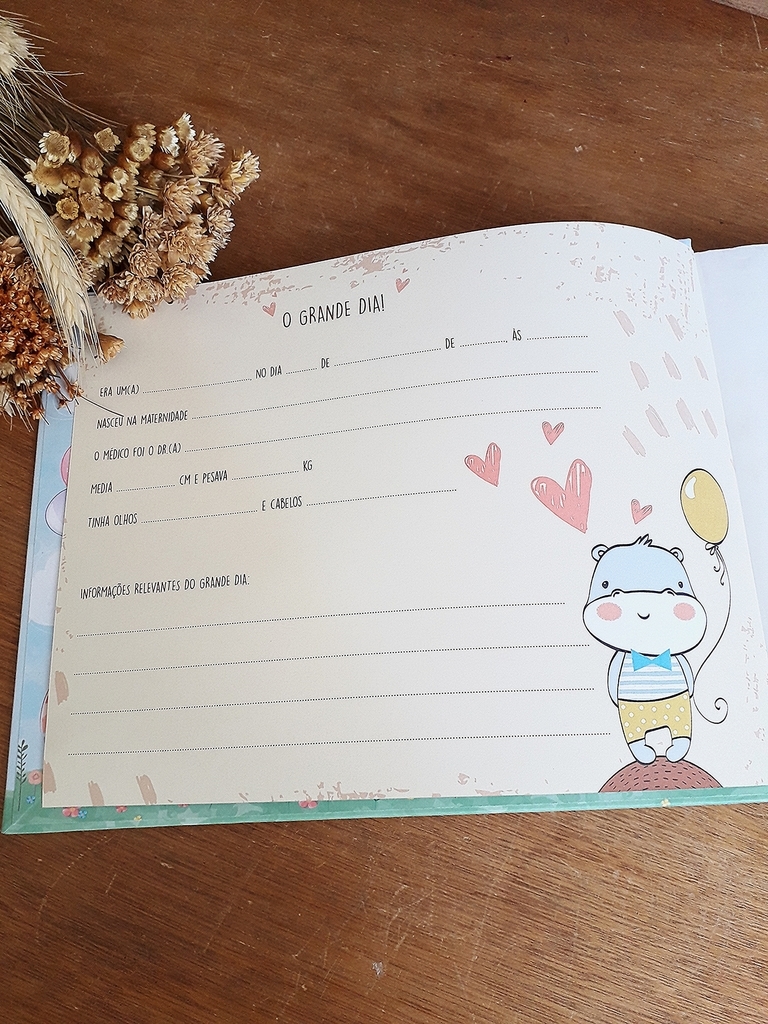 O GRANDE DIA!
ERA UM(A) .................... NO DIA ........ DE .................... DE .........., ÀS ............
NASCEU NA MATERNIDADE ....................
O MÉDICO FOI O DR.(A) ....................
MEDIA ............ CM E PESAVA ............ KG
TINHA OLHOS .................... E CABELOS ....................
INFORMAÇÕES RELEVANTES DO GRANDE DIA: